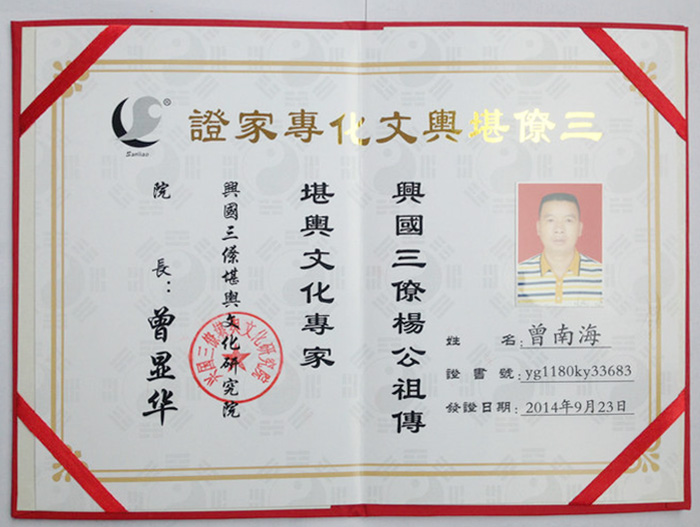 三僚堪輿文化專家證
Sanliao
®
姓名:曾南海
證書號:yg1180ky33683
發證日期:2014年9月23日
興國三僚楊公祖傳
堪輿文化專家
興國三僚堪輿文化研究院
院長:曾显华
兴国三僚堪舆文化研究院